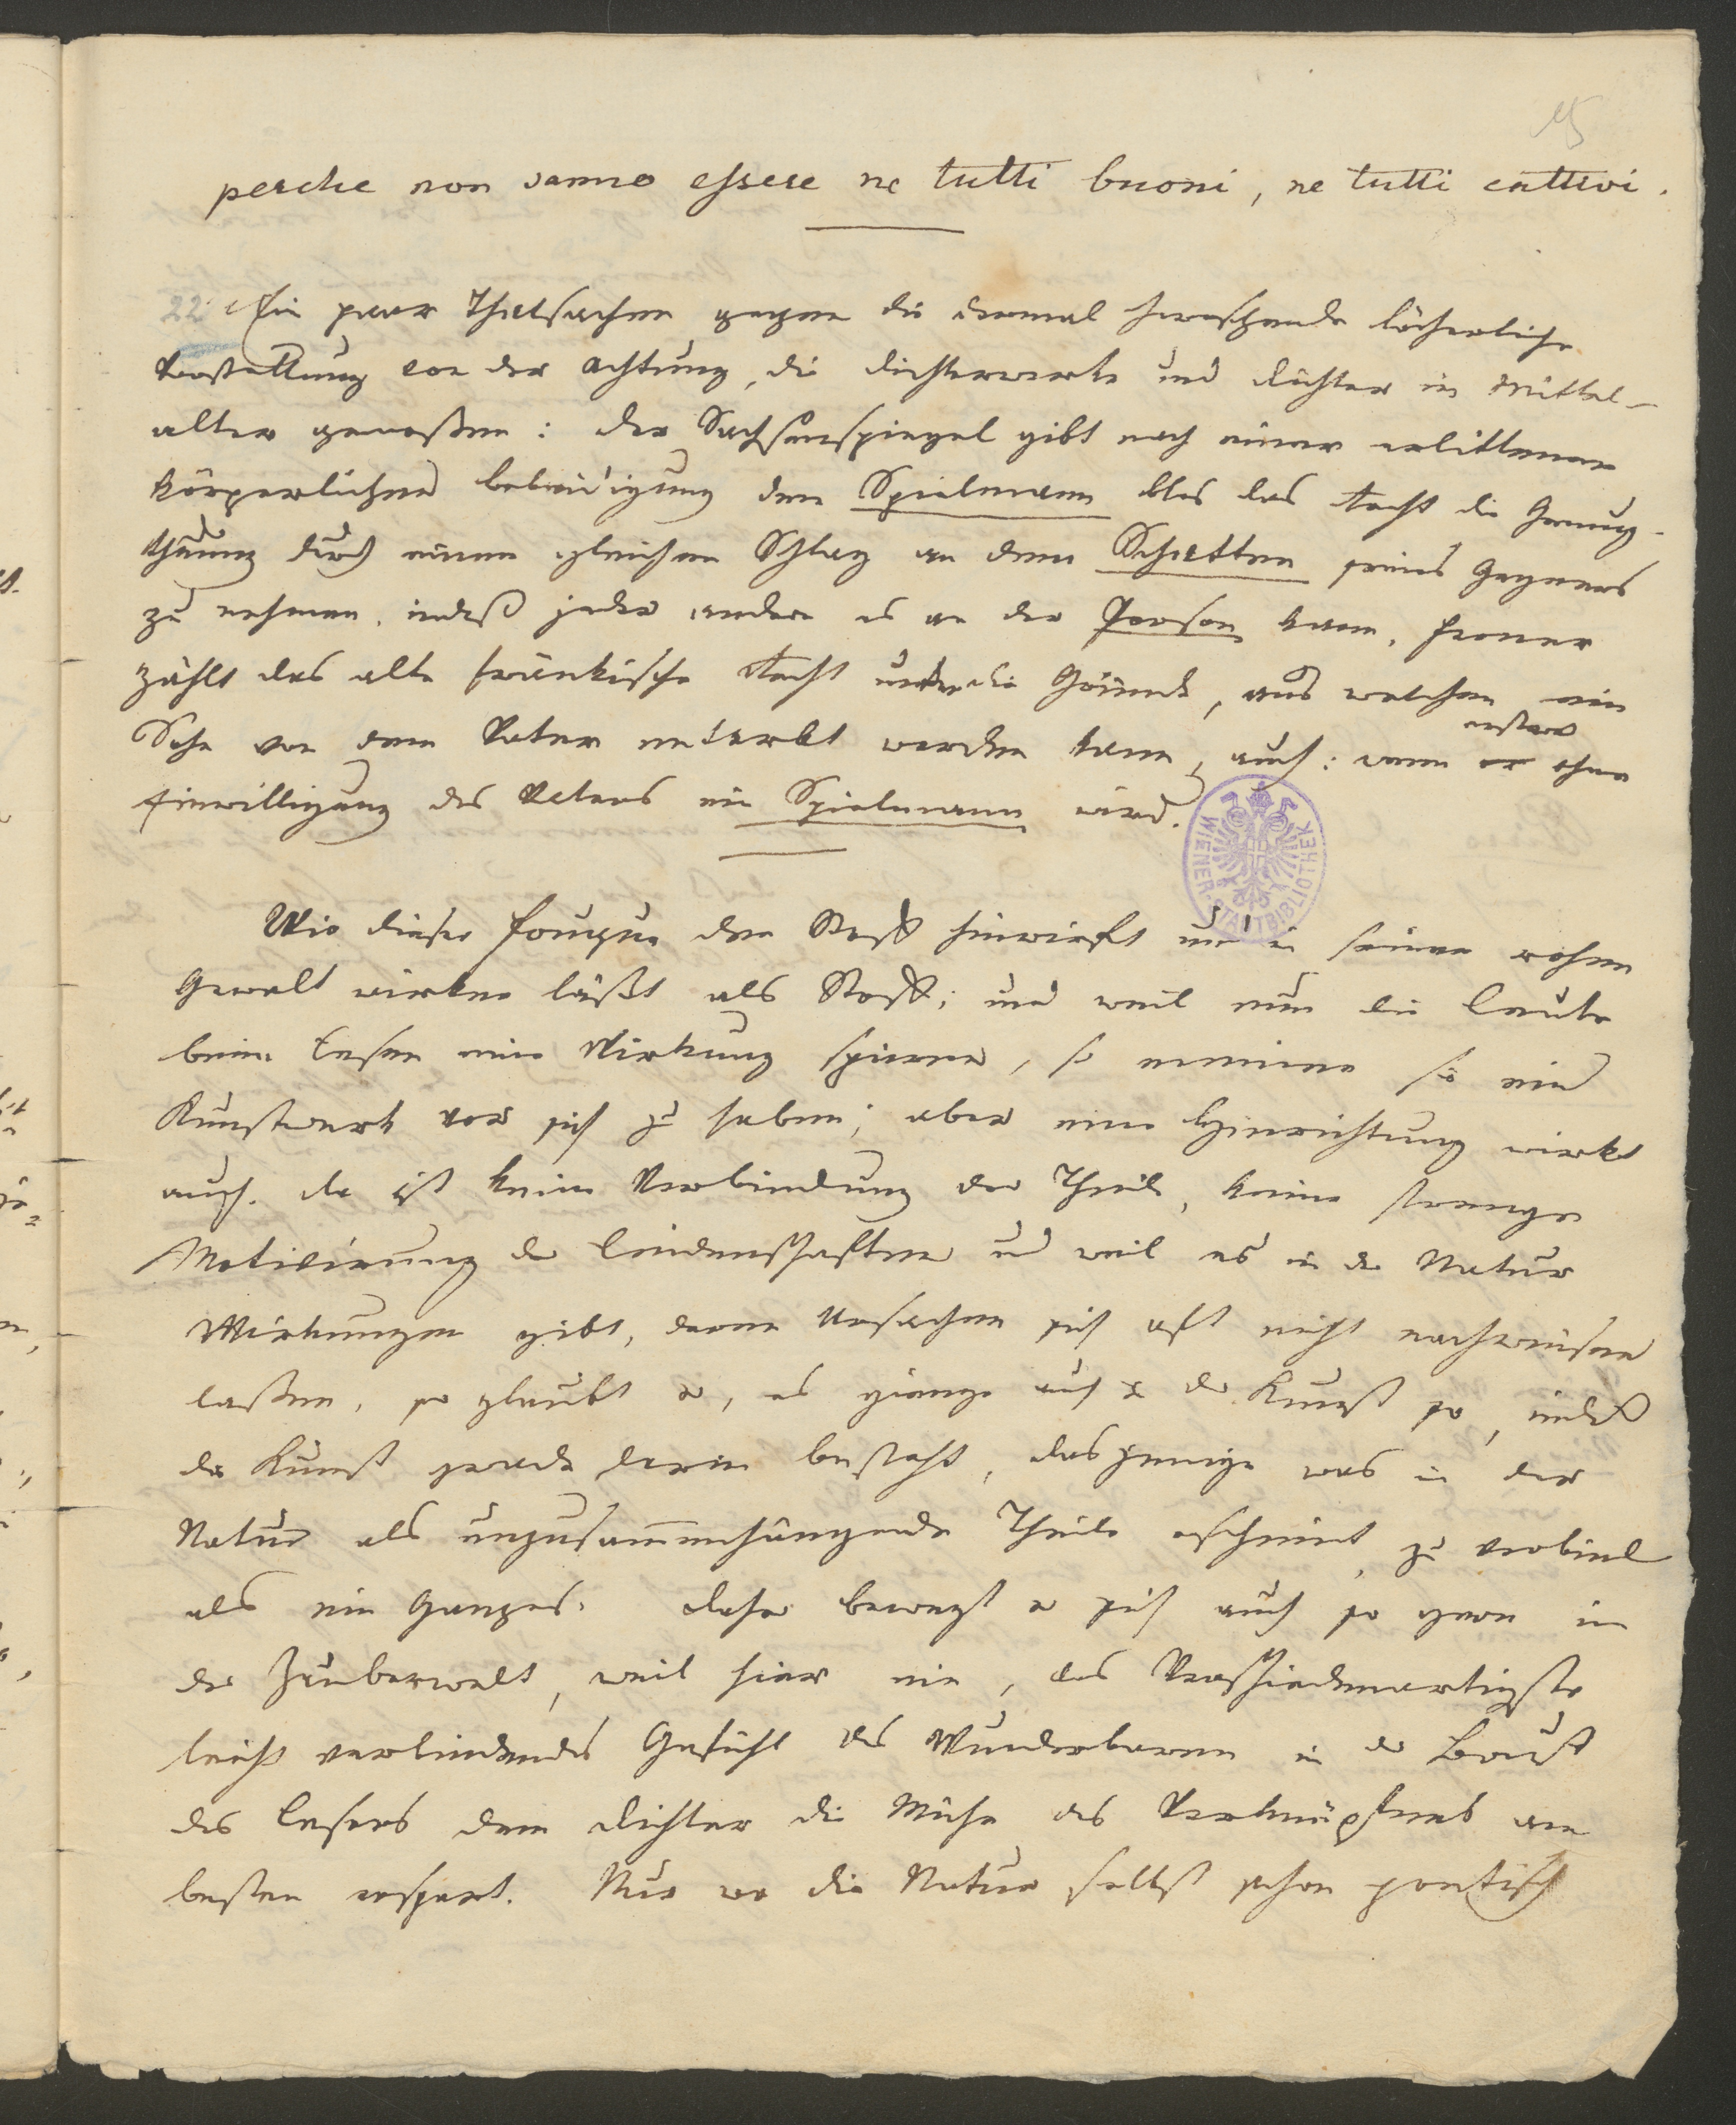 15
perche non sanno essere ne tutti buoni, ne tutti cattivi.
22 Ein paar Thatsachen gegen die dermal herrschende lächerliche
Vorstellung von der Achtung, die Dichterwerke und Dichter im Mittel-
alter genoßen: der Sachsenspiegel gibt nach einer erlittenen
körperlichen Beleidigung dem Spielmann blos das Recht die Genug-
thuung durch einen gleichen Schlag an dem Schatten seines Gegners
zu nehmen, indeß jeder andere es an der Person kann. Ferner
zählt das alte fränkische Recht unter die Gründe, aus welchen ein
Sohn von dem Vater enterbt werden kann, auch: wenn er ersterer ohne
Einwilligung des Vaters ein Spielmann wird.
WIENER STADTBIBLIOTHEK
Wie dieser Fouque den Stoff hinwirft und in seiner rohen
Gewalt wirken läßt als Stoff; und weil nun die Leute
beim Lesen eine Wirkung spüren, so meinen sie ein
Kunstwerk vor sich zu haben; aber eine Hinrichtung wirkt
auch. da ist keine Verbindung der Theile, keine strenge
Motivirung der Leidenschaften und weil es in der Natur
Wirkungen gibt, deren Ursachen sich oft nicht nachweisen
laßen, so glaubt er, es gienge auch in der Kunst so, indeß
die Kunst gerade darin besteht, dasjenige was in der
Natur als unzusammenhängende Theile erscheint, zu verbind
als ein Ganzes. Daher bewegt er sich auch so gern in
der Zauberwelt, weil hier ein, das Verschiedenartigste
leicht verbindendes Gefühl des Wunderbaren in der Brust
des Lesers dem Dichter die Mühe des Verknüpfens am
besten erspart. Nur wo die Natur selbst schon poetisch